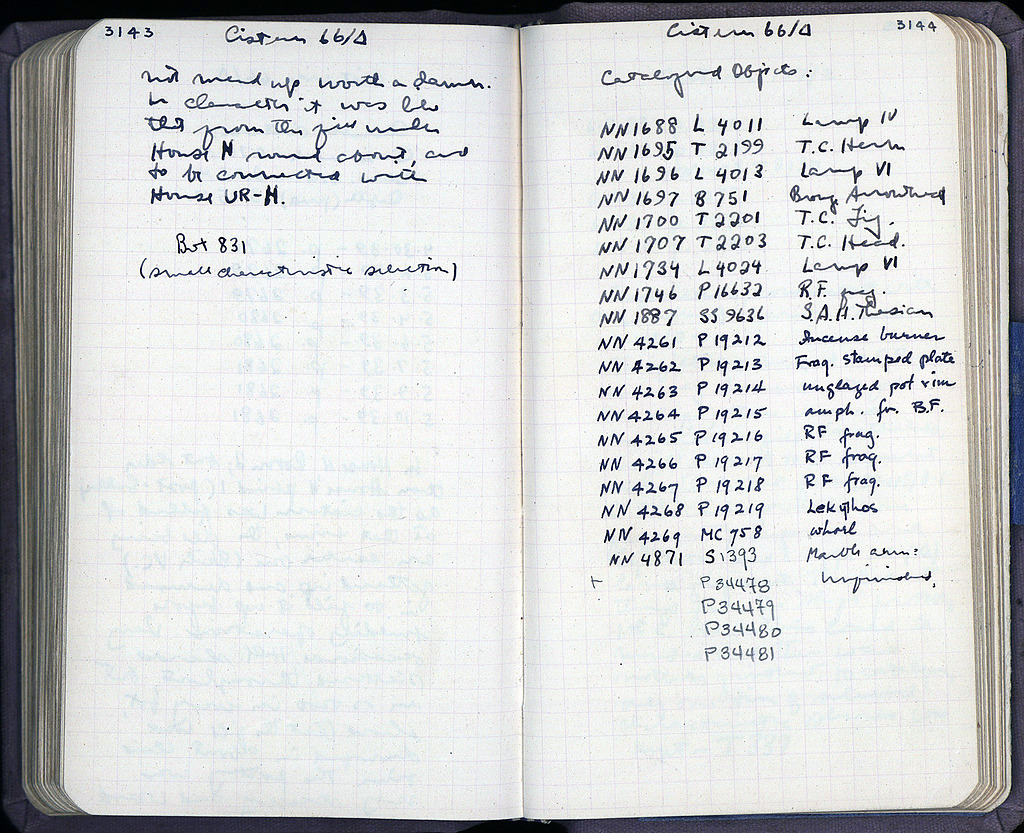 3143 Cistern 66/Δ
not mend up worth a damn.
In character it was like
that from the fill under
House N round about, and
to be connected with
House UR-N.
But 831
(small characteristic selection)
Cistern 66/Δ 3144
Catalogued Objects:
NN1688 L 4011 Lamp IV
NN1695 T 2199 T.C. Herm
NN 1696 L 4013 Lamp VI
NN 1697 B 751 Bronz Arrowhead
NN 1700 T 2201 T.C. Fig.
NN 1707 T 2203 T.C. Head.
NN 1734 L 4024 Lamp VI
NN 1746 P 16632 R.F. frag.
NN 1887 SS 9636 S.A.H. Thasian
NN 4261 P 19212 Incense burner
NN 4262 P 19213 Frag. stamped plate
NN 4263 P 19214 unglazed pot rim
NN 4264 P 19215 amph. fr. B.F.
NN 4265 P 19216 RF frag.
NN 4266 P 19217 RF frag.
NN 4267 P 19218 RF frag.
NN 4268 P 19219 Lekythos
NN 4269 MC 758 whorl
NN 4871 S1393 Marble arm:
unfinished.
+ P34478
P34479
P34480
P34481